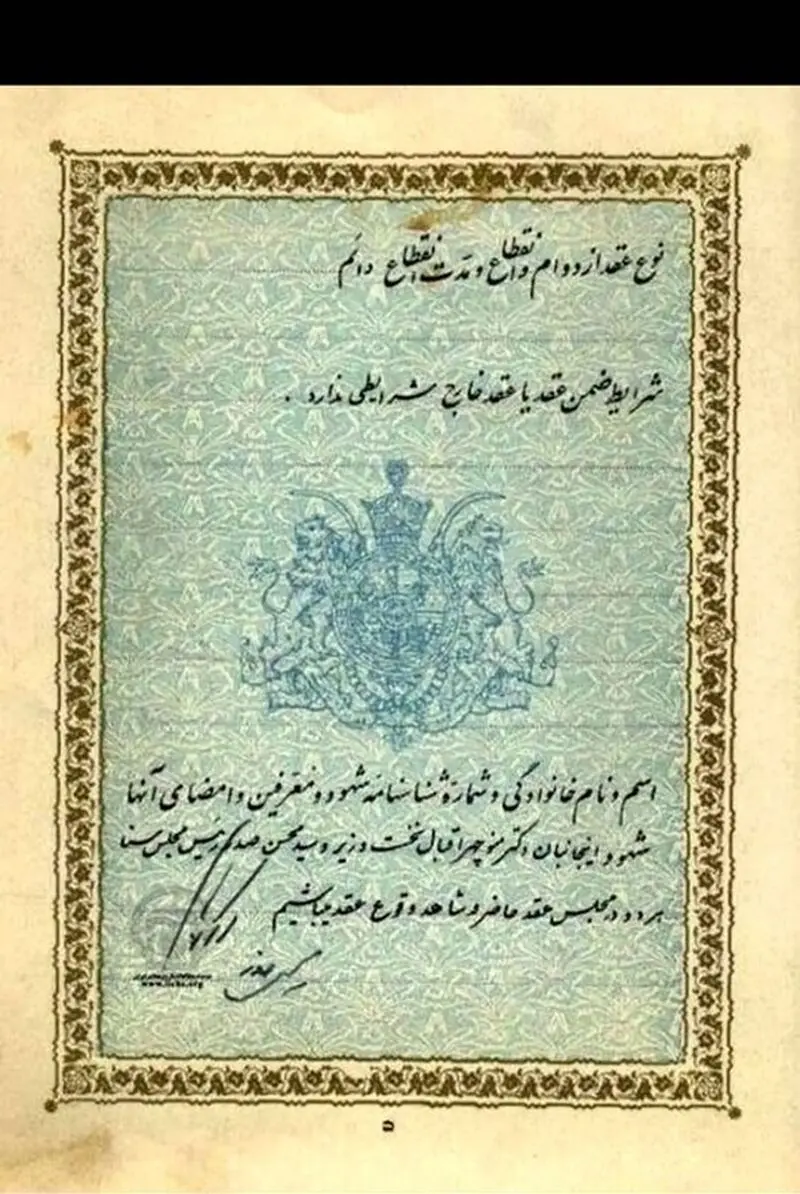 نوع عقد از دوام و انقطاع و مدت انقطاع دائم
شرایط ضمن عقد یا عقد خارج شرایطی ندارد .
اسم و نام خانوادگی و شمارهٔ شناسنامه شهود و معرفین و امضای آنها
شهود اینجانبان دکتر منوچهر اقبال نخست وزیر و سید محسن صدر رئیس مجلس سنا
هر دو در مجلس عقد حاضر و شاهد وقوع عقد میباشیم
محسن صدر
۵